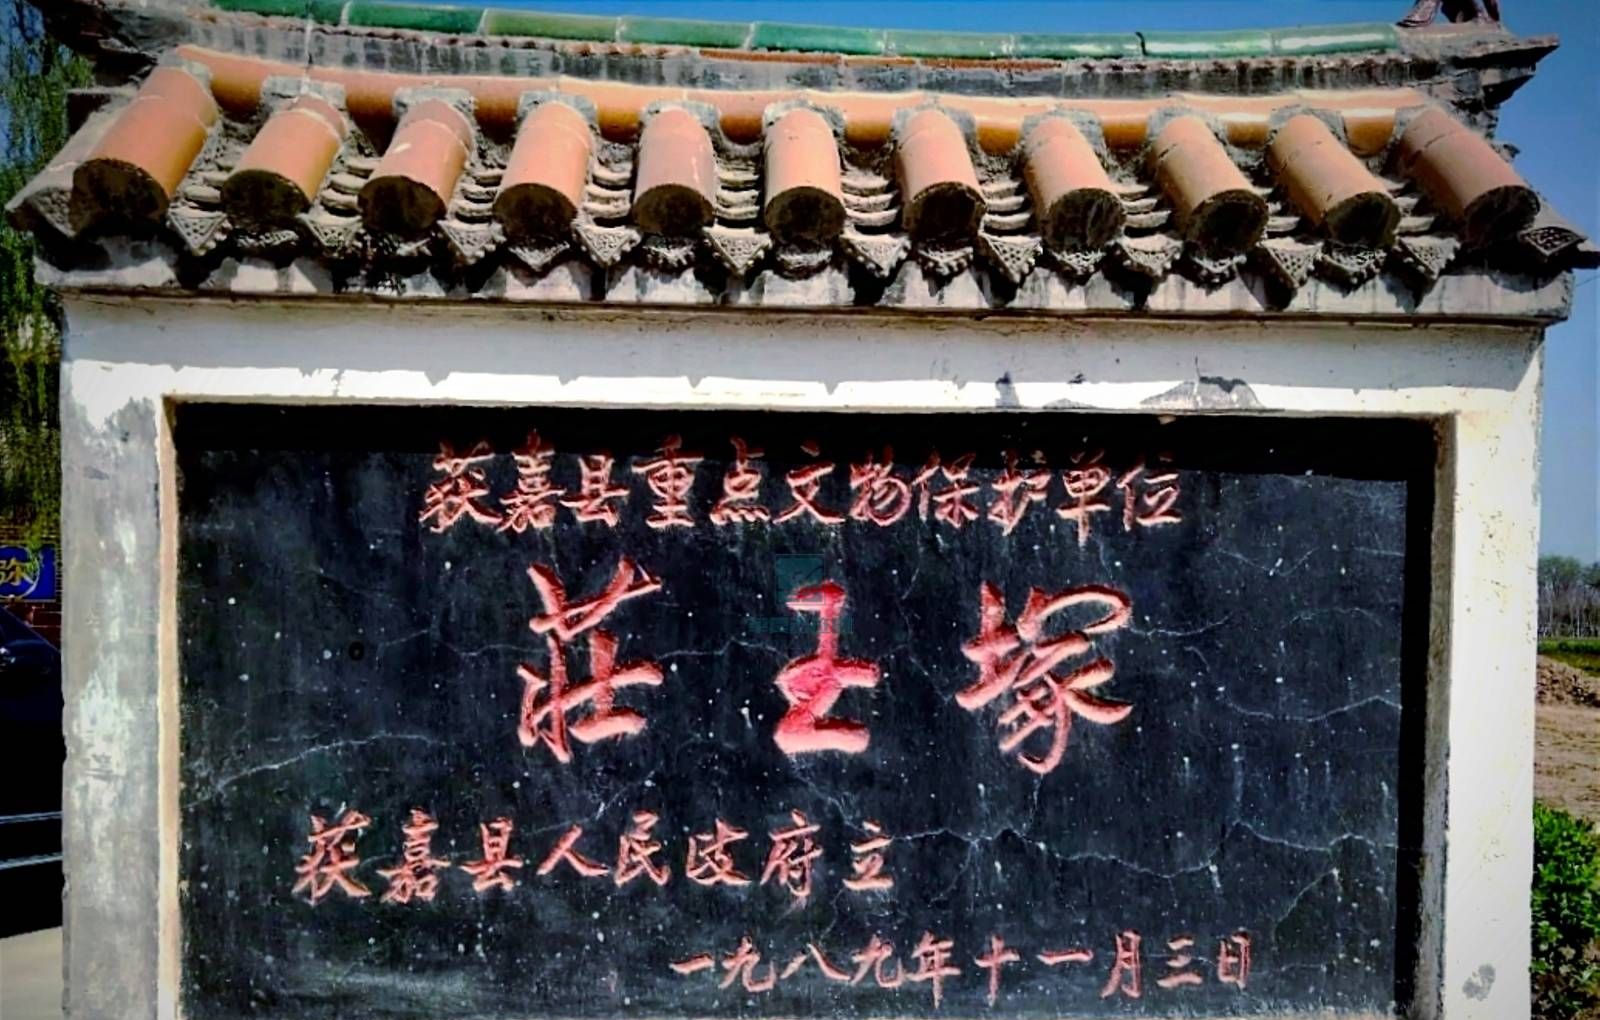 获嘉县重点文物保护单位
莊王塚
获嘉县人民政府立
一九八九年十一月三日